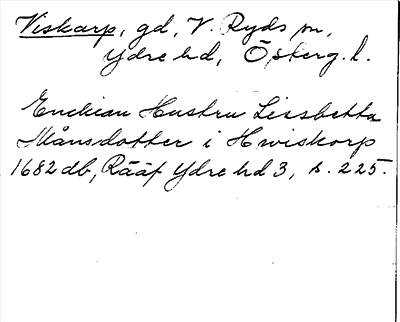 Viskarp, gd, V. Ryds sn,
Ydre hd, Österg. l.
Enckian Hustru Lissbetta
Månsdotter i Hwiskorp
1682 db, Rääf Ydre hd 3, s. 225.